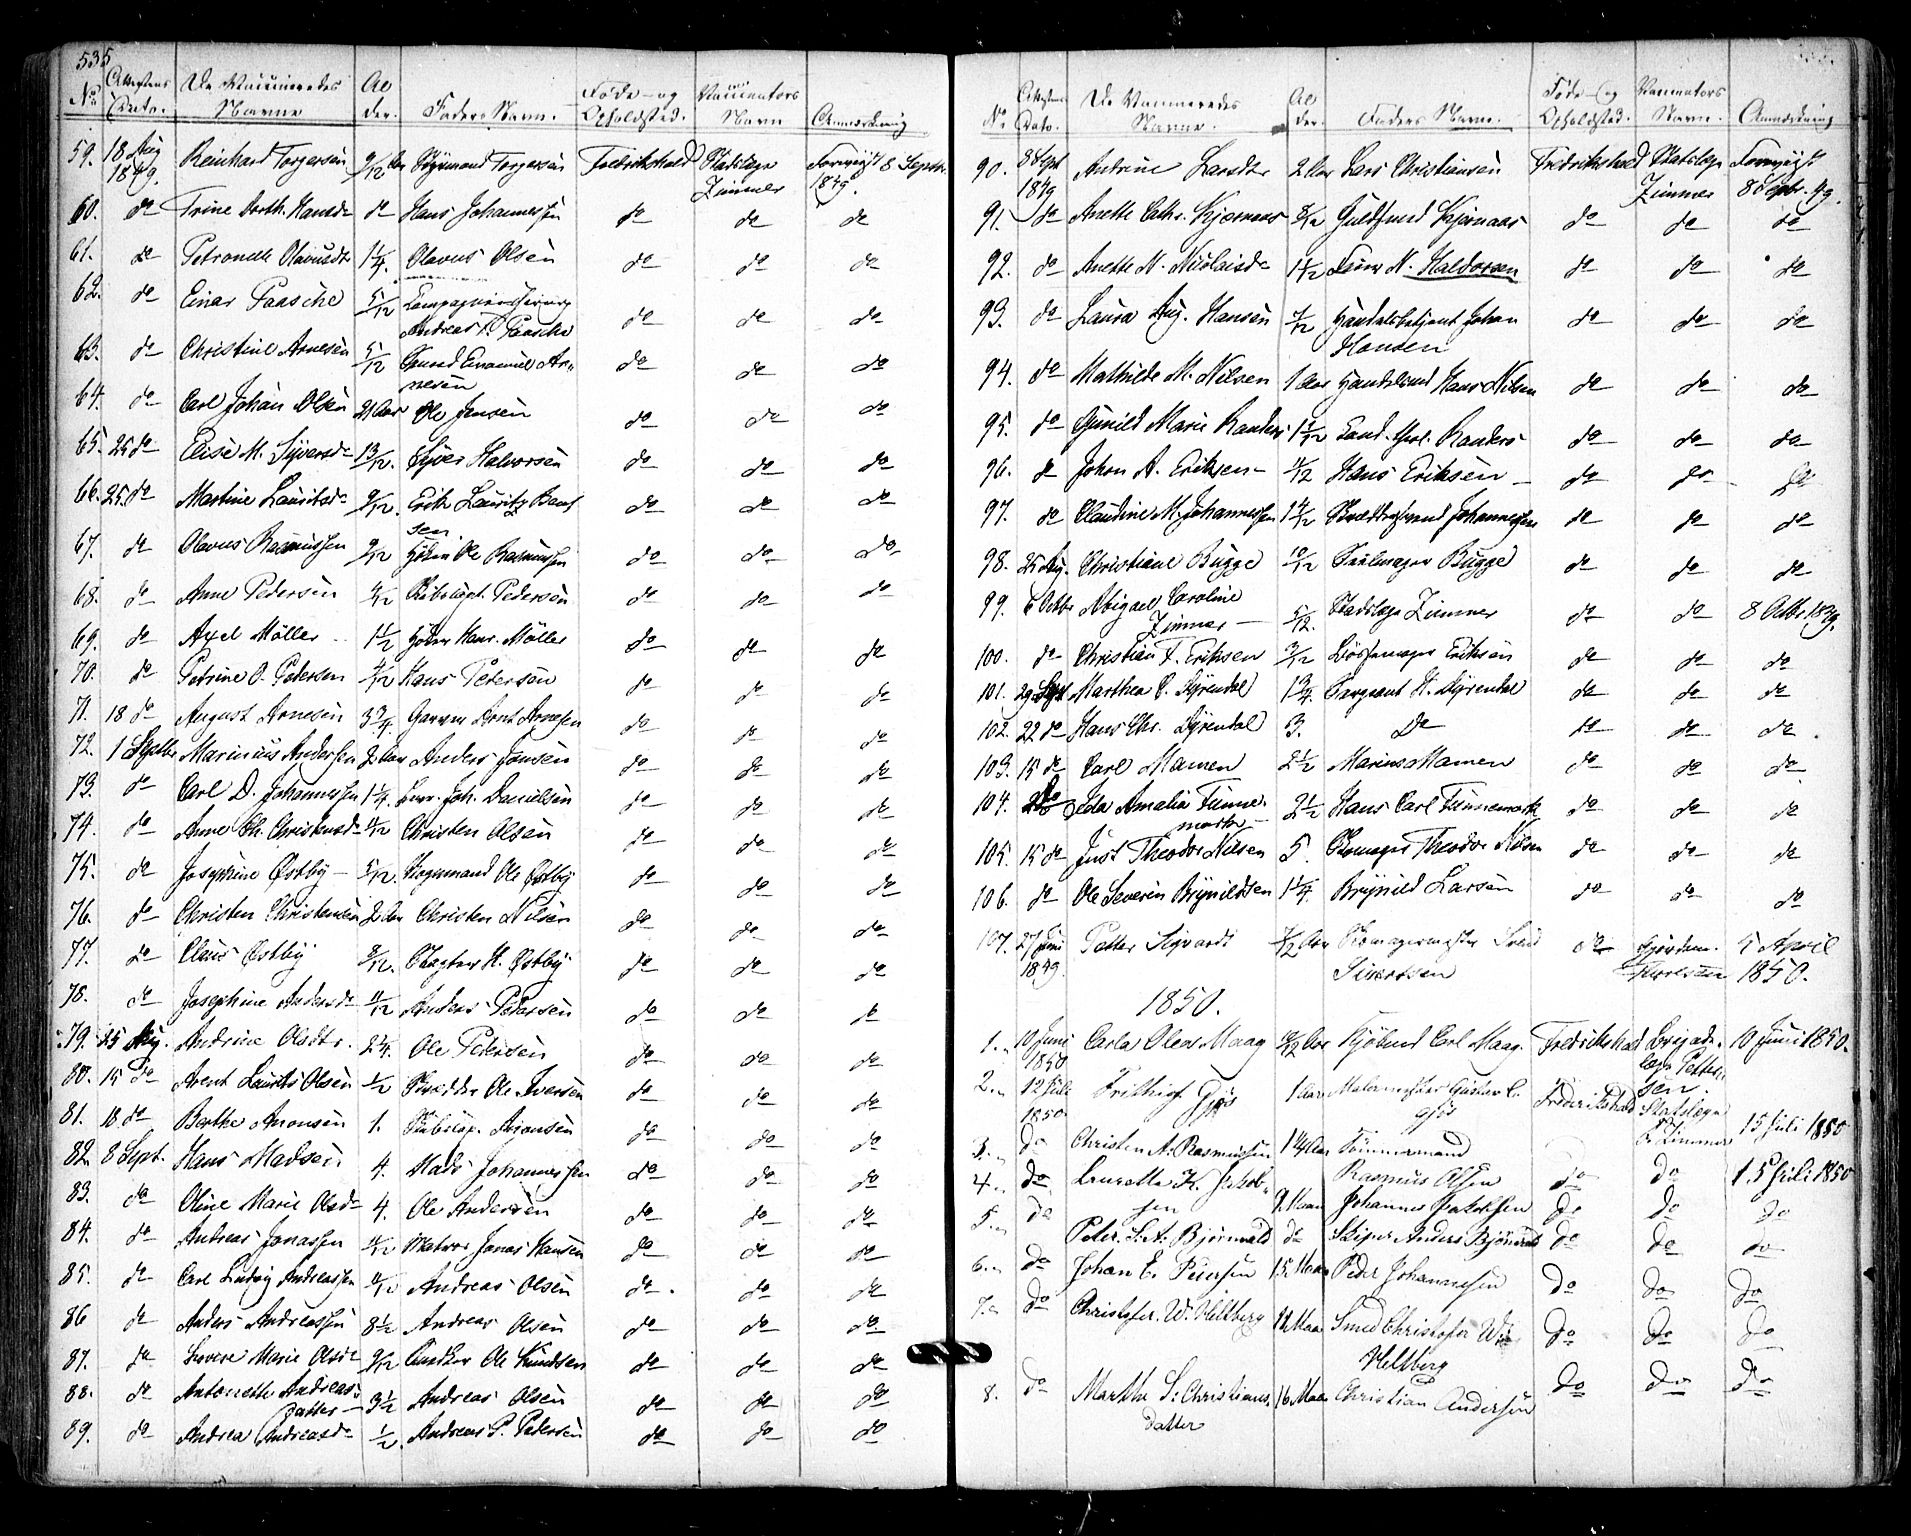 535
No Attestens Dato. De Vaccineredes Navne Al der. Faders Navn. Føde- og Opholdsted. Vaccinators Navn Anmærkning
59. 18 Aug 1849. Reinhard Torgersen 9/12 Aar Torgersen Fredrikshald Stadslæge Zimmer Forevist 8 Septbr. 1849.
60. do Trine Dorth. Hansdr do Hans Johannessen do do do
61. do Petronelle Olavusdr 1 1/4. Olavus Olsen do do do
62. do Einar Paasche 5/12 Compagniechirurg Andreas T. Paasche do do do
63. do Christine Arnesen 5/12 Emanuel Arnesen do do do
64. do Carl Johan Olsen 2 Aar Ole Jensen do do do
65. 25 do Elise M. Syversdr 13/12. Syver Halvorsen do do do
66. 25. do Martine Lauritsdr 9/12. Erik Lauritz Bentsen do do do
67. do Olavus Rasmussen 9/12 Ole Rasmussen do do do
68. do Anne Pedersen Pedersen do do do
69. do Axel Möller 1 1/2 Hans Möller do do do
70. do Petrine O. Petersen Hans Petersen do do do
71. 18 do August Arnesen 3 3/4. Garver Arnt Arnesen do do do
72. 1 Septbr Marinius Andersen 2 Aar Anders Jensen do do do
73. do Carl D. Johannessen 1 1/4. Joh. Danielsen do do do
74. do Anne Ch. Christensdr Christen Olsen do do do
75. do Josephine Østby 5/12. Ole Østby do do do
76. do Christen Christensen 2 Aar Christen Nilsen do do do
77. do Claus Østby Slagter H. Østby do do do
78. do Josephine Andersdr 11/12 Anders Petersen do do do
79. 25 Aug. Andrine Olsdtr. 2 1/4. Ole Petersen do do do
80. 15 do Arent Laurits Olsen 1/2 Skrædder Ole Iversen do do do
81. 18. do Berthe Aronsen 1. Aronsen do do do
82. 8 Sept. Hans Madsen 4. Mads Johannessen do do do
83. do Oline Marie Olsdr 4. Ole Andersen do do do
84. do Andreas Jonassen 11/12 Matros Jonas Hansen do do do
85. do Carl Ludvig Andreassen 11/12 Andreas Olsen do do do
86 do Anders Andreassen 8 1/2 Andreas Olsen do do do
87. do Severe Marie Olsdr 9/12 Ole Knudsen do do do
88. do Antonette Andreasdatter 3 1/2 Andreas Olsen do do do
89. do Andrea Andreasdr 1/2. Andreas P. Pedersen do do do
No Attestens Dato. De Vaccineredes Navne. Al der. Faders Navne. Føde- og Opholdsted. Vaccinators Navn. Anmærkning
90. 8 Sept 1849 Andrine Larsdtr 2 Aar Lars Christiansen Fredrikshald Statslæge Zimmer Forevist 8 Septbr. 49.
91. do Anette Cathr. Kjærnaas Kjærnaas do do do
92. do Anette N. Nicolaisdr 1 1/2 N. Haldorsen do do do
93. do Laura Aug. Hansen Handelsbetjent Johan Hansen do do do
94. do Mathilde M. Nilsen 1 Aar Hans Nilsen do do do
95. do Gunild Marie Randers 1 1/12 Randers do do do
96. do Johan A. Eriksen Hans Eriksen do do do
97. do Claudine M. Johannessen Johannessen do do do
98. 25 Aug. Christiane Bugge 10/12 Seilmager Bugge do do do
99. 6 Octbr Abigael Caroline Zimmer 5/12. Stadslæge Zimmer do do 8 Octbr. 1849.
100. do Christian F. Eriksen Bøssemager Eriksen do do do
101. 29 Sept Marthea C. Dyrendal 1 3/4. Sergeant H. Dyrendal do do do
102. 22 do Hans Chr. Dyrendal 3. Do do do do.
103. 15 do Carl Mamen 2 1/2 Marius Mamen do do do.
104. do Ida Amalia Finnemark 2 1/2 Hans Carl Finnemark do do do
105. 15 do Just Theodor Nilsen 5. Skomager Theodor Nilsen do do do
106. do Ole Severin Brynildsen 1 1/4. Brynild Larsen do do do
107. 27 Juni 1849 Petter Sigvardt Aar Skomagermester Sivertsen do 5 April 1850.
1850.
1. 10 Juni 1850 Carla Olea Maag Aar Kjøbmd Carl Maag. Fredrikshald Brigadelæge Pettersen. 10 Juni 1850.
2. 12 Juli 1850. Frithiof Gjøs 1 Aar Malermester Gustav C. Gjøs Frederikshald Statslæge Zimmer 15 Juli 1850
3. do Christen A. Rasmussen 1 1/4 Aar Tømmermand Rasmus Olsen do do 15 Juli 1850
4. do Lauretta K. Jakobsen 9. Maan Johannes Jakobsen do do do
5. do Peter. L. A. Bjørnvald do Skiper Anders Bjørnvald do do do
6. do Johan E. Pedersen 15. Maan Peder Johannesen do do do
7. do Christofer. W. Heltberg 14 Maan Smed Christofer Heltberg do do do
8. do Marthe S. Christiansdatter 16 Maan Christian Andersen do do do